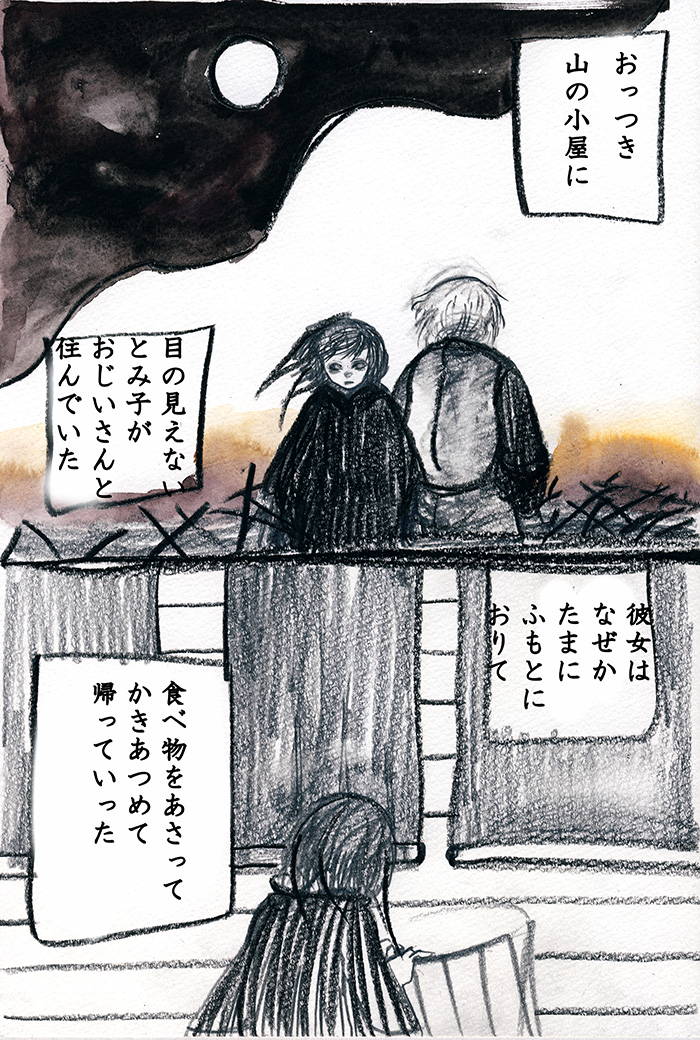 おっつき
山の小屋に
目の見えない
とみ子が
おじいさんと
住んでいた
彼女は
なぜか
たまに
ふもとに
おりて
食べ物をあさって
かきあつめて
帰っていった